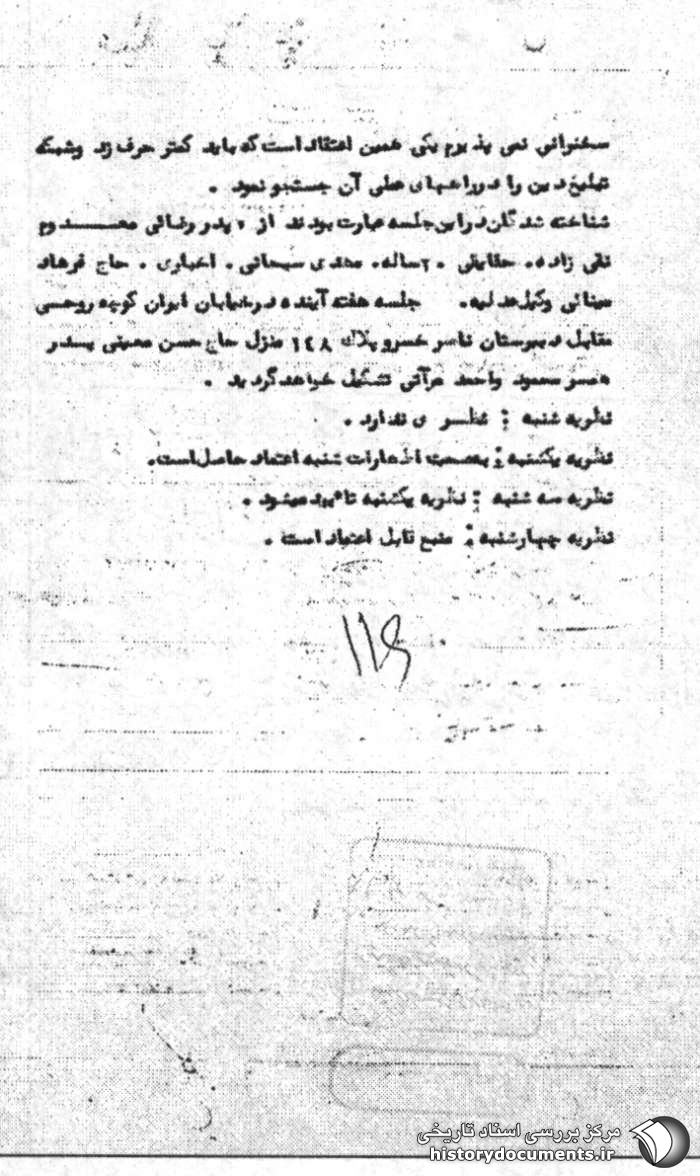 سخنرانی نمی پذیرم یکی همین اعتقاد است که باید کمتر حرف زد وشبکه
تبلیغ دین را در راههای عملی آن جستجو نمود .
شناخته شدگان در این جلسه عبارت بودند از ، پدر رضائی معـــــدوم
تقی زاده . حقایقی ۲۰ساله . مهدی سبحانی . اخباری . حاج فرهاد
مینائی وکیل عدلیه . جلسه هفته آینده در خیابان ایران کوچه روحی
مقابل دبیرستان ناصر خسرو پلاک ۱۴۸ منزل حاج حسن معینی پـدر
همسر محمود واحمد مرآتی تشکیل خواهد گردید .
نظریه شنبه : نظـــر ی ندارد .
نظریه یکشنبه : بصحت اظهارات شنبه اعتماد حاصل است.
نظریه سه شنبه : نظریه یکشنبه تائید میشود .
نظریه چهارشنبه : منبع قابل اعتماد است .
مرکز بررسی اسناد تاریخی
historydocuments.ir